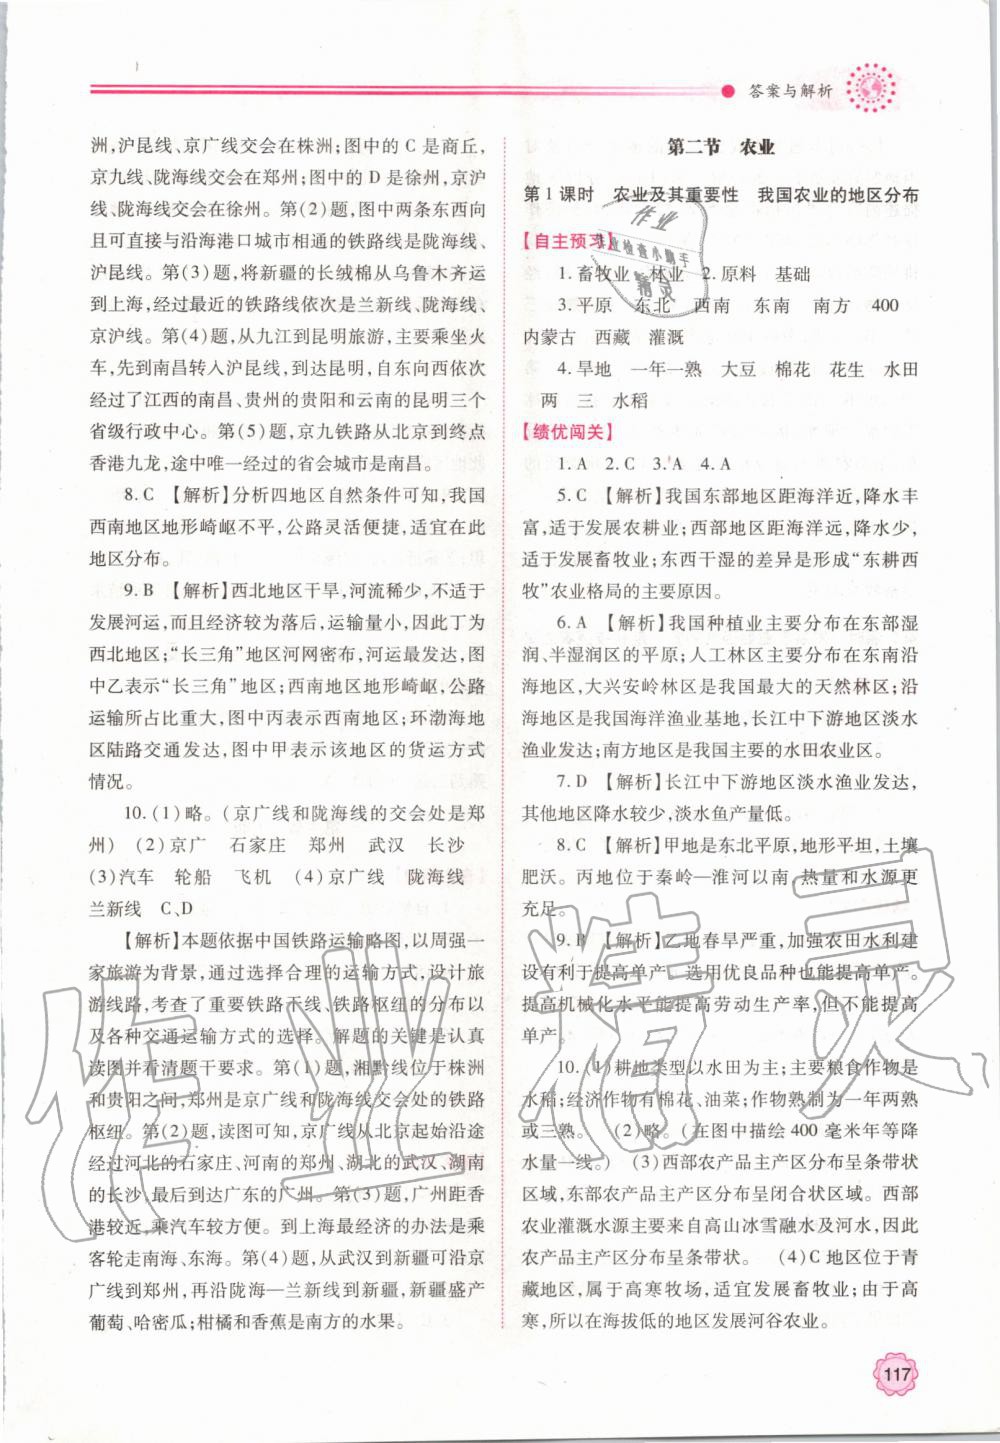 答案与解析
洲,沪昆线、京广线交会在株洲;图中的 C 是商丘,
京九线、陇海线交会在郑州;图中的 D 是徐州,京沪
线、陇海线交会在徐州。第(2)题,图中两条东西向
且可直接与沿海港口城市相通的铁路线是陇海线、
沪昆线。第(3)题,将新疆的长绒棉从乌鲁木齐运
到上海,经过最近的铁路线依次是兰新线、陇海线、
京沪线。第(4)题,从九江到昆明旅游,主要乘坐火
车,先到南昌转入沪昆线,到达昆明,自东向西依次
经过了江西的南昌、贵州的贵阳和云南的昆明三个
省级行政中心。第(5)题,京九铁路从北京到终点
香港九龙,途中唯一经过的省会城市是南昌。
8.C 【解析】分析四地区自然条件可知,我国
西南地区地形崎岖不平,公路灵活便捷,适宜在此
地区分布。
9.B 【解析】西北地区干旱,河流稀少,不利于
发展河运,而且经济较为落后,运输量小,因此丁为
西北地区;“长三角”地区河网密布,河运最发达,图
中乙表示“长三角”地区;西南地区地形崎岖,公路
运输所占比重大,图中丙表示西南地区;环渤海地
区陆路交通发达,图中甲表示该地区的货运方式
情况。
10.(1)略。(京广线和陇海线的交会处是郑
州) (2)京广 石家庄 郑州 武汉 长沙
(3)汽车 轮船 飞机 (4)京广线 陇海线
兰新线 C、D
【解析】本题依据中国铁路运输略图,以周强一
家旅游为背景,通过选择合理的运输方式,设计旅
游线路,考查了重要铁路干线、铁路枢纽的分布以
及各种交通运输方式的选择。解题的关键是认真
读图并看清题干要求。第(1)题,湘黔线位于株洲
和贵阳之间,郑州是京广线和陇海线交会处的铁路
枢纽。第(2)题,读图可知,京广线从北京起始沿途
经过河北的石家庄、河南的郑州、湖北的武汉、湖南
的长沙,最后到达广东的广州。第(3)题,广州距香
港较近,乘汽车较方便。到上海最经济的办法是乘
客轮走南海、东海。第(4)题,从武汉到新疆可沿京
广线到郑州,再沿陇海—兰新线到新疆,新疆盛产
葡萄、哈密瓜;柑橘和香蕉是南方的水果。
第二节 农业
第 1 课时 农业及其重要性 我国农业的地区分布
【自主预习】
1.畜牧业 林业 2.原料 基础
3.平原 东北 西南 东南 南方 400
内蒙古 西藏 灌溉
4.旱地 一年一熟 大豆 棉花 花生 水田
两 三 水稻
【绩优闯关】
1.A 2.C 3.A 4.A
5.C 【解析】我国东部地区距海洋近,降水丰
富,适于发展农耕业;西部地区距海洋远,降水少,
适于发展畜牧业;东西干湿的差异是形成“东耕西
牧”农业格局的主要原因。
6.A 【解析】我国种植业主要分布在东部湿
润、半湿润区的平原;人工林区主要分布在东南沿
海地区,大兴安岭林区是我国最大的天然林区;沿
海地区是我国海洋渔业基地,长江中下游地区淡水
渔业发达;南方地区是我国主要的水田农业区。
7.D 【解析】长江中下游地区淡水渔业发达,
其他地区降水较少,淡水鱼产量低。
8.C 【解析】甲地是东北平原,地形平坦,土壤
肥沃。丙地位于秦岭—淮河以南,热量和水源更
充足。
9.B 【解析】乙地春旱严重,加强农田水利建
设有利于提高单产。选用优良品种也能提高单产。
提高机械化水平能提高劳动生产率,但不能提高
单产。
10.(1)耕地类型以水田为主;主要粮食作物是
水稻;经济作物有棉花、油菜;作物熟制为一年两熟
或三熟。 (2)略。(在图中描绘 400 毫米年等降
水量一线。) (3)西部农产品主产区分布呈条带状
区域,东部农产品主产区分布呈闭合状区域。西部
农业灌溉水源主要来自高山冰雪融水及河水,因此
农产品主产区分布呈条带状。 (4)C 地区位于青
藏地区,属于高寒牧场,适宜发展畜牧业;由于高
寒,所以在海拔低的地区发展河谷农业。
作业
作业检查小助手
精灵
作业精灵
117